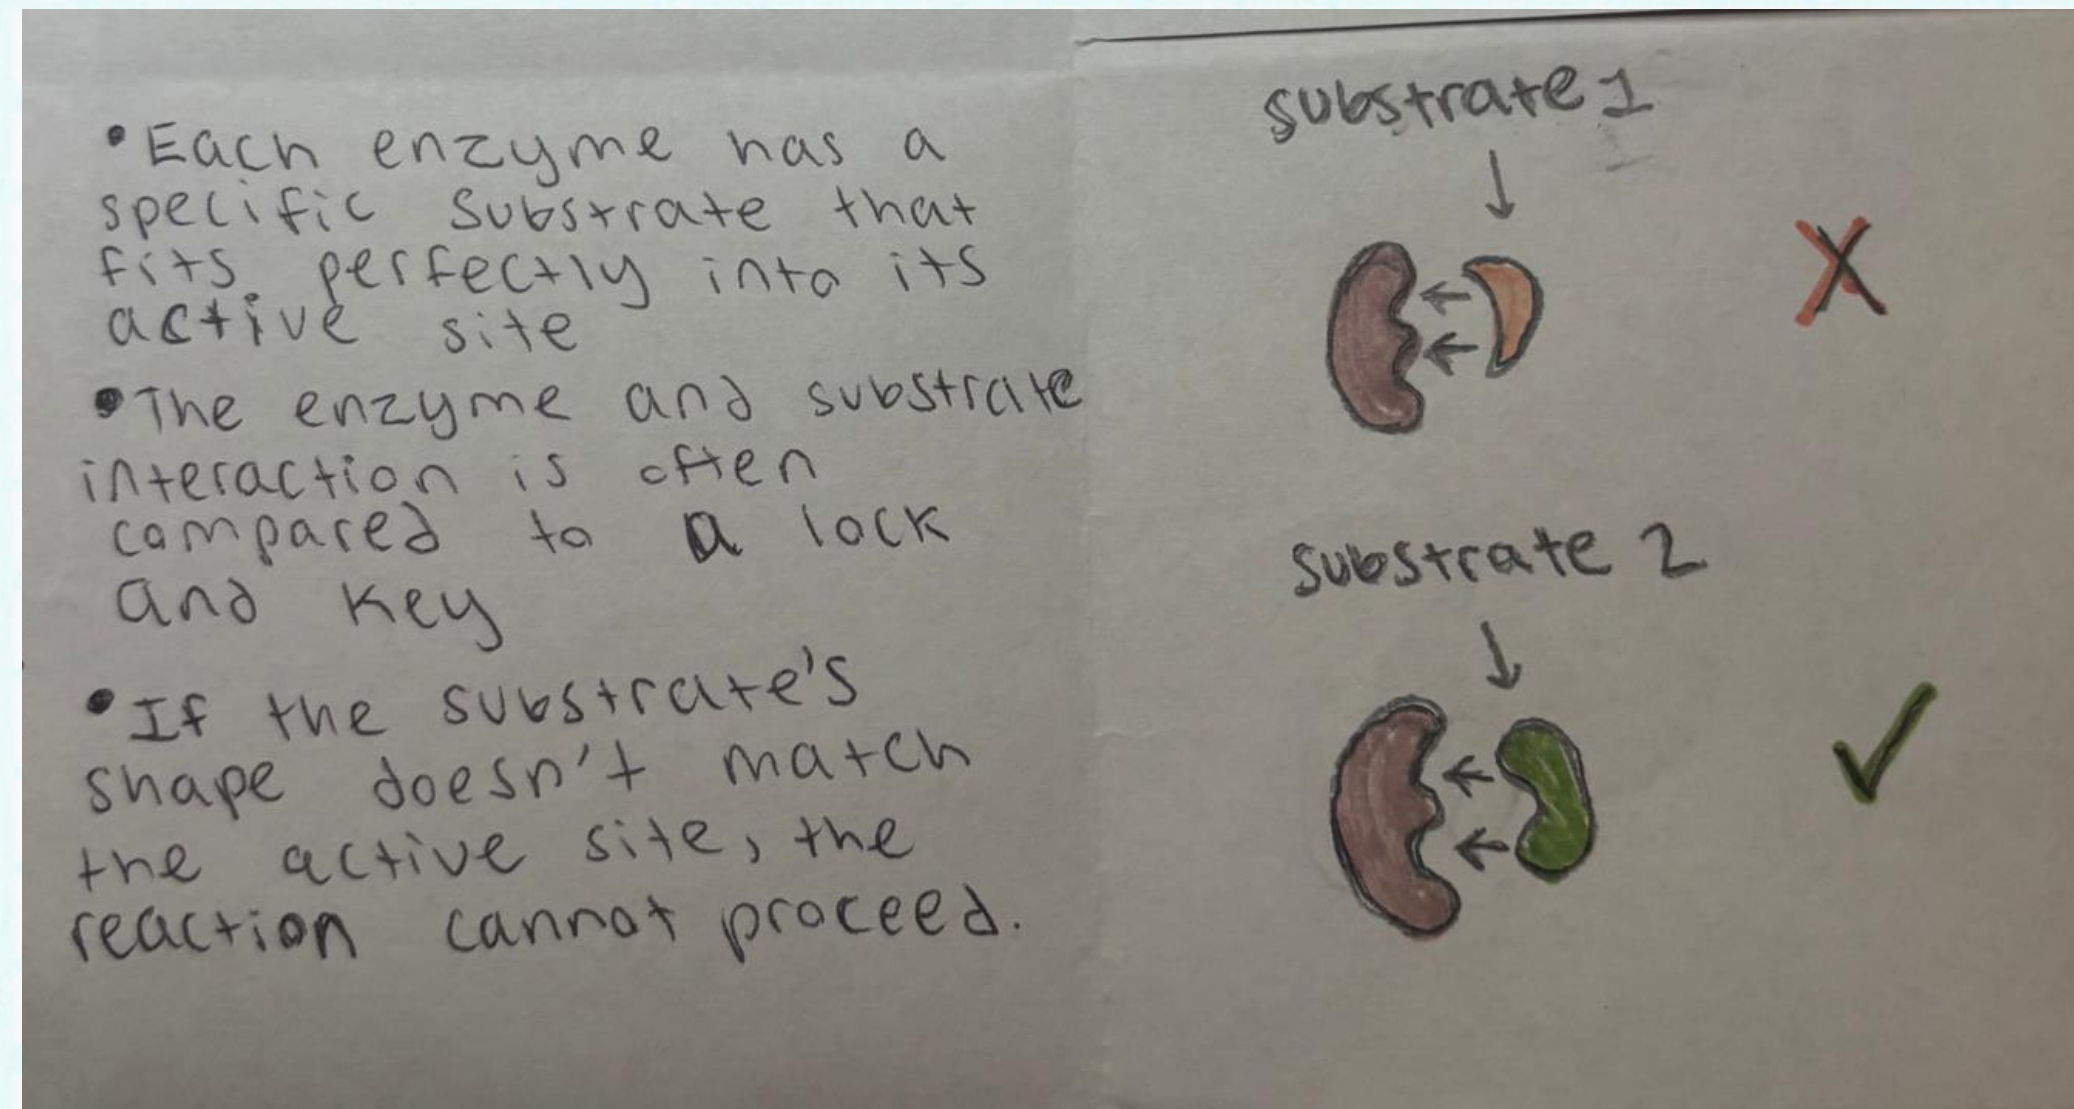 •Each enzyme has a
specific substrate that
fits perfectly into its
active site
•The enzyme and substrate
interaction is often
compared to a lock
and key
•If the substrate's
shape doesn't match
the active site, the
reaction cannot proceed.
substrate 1
substrate 2